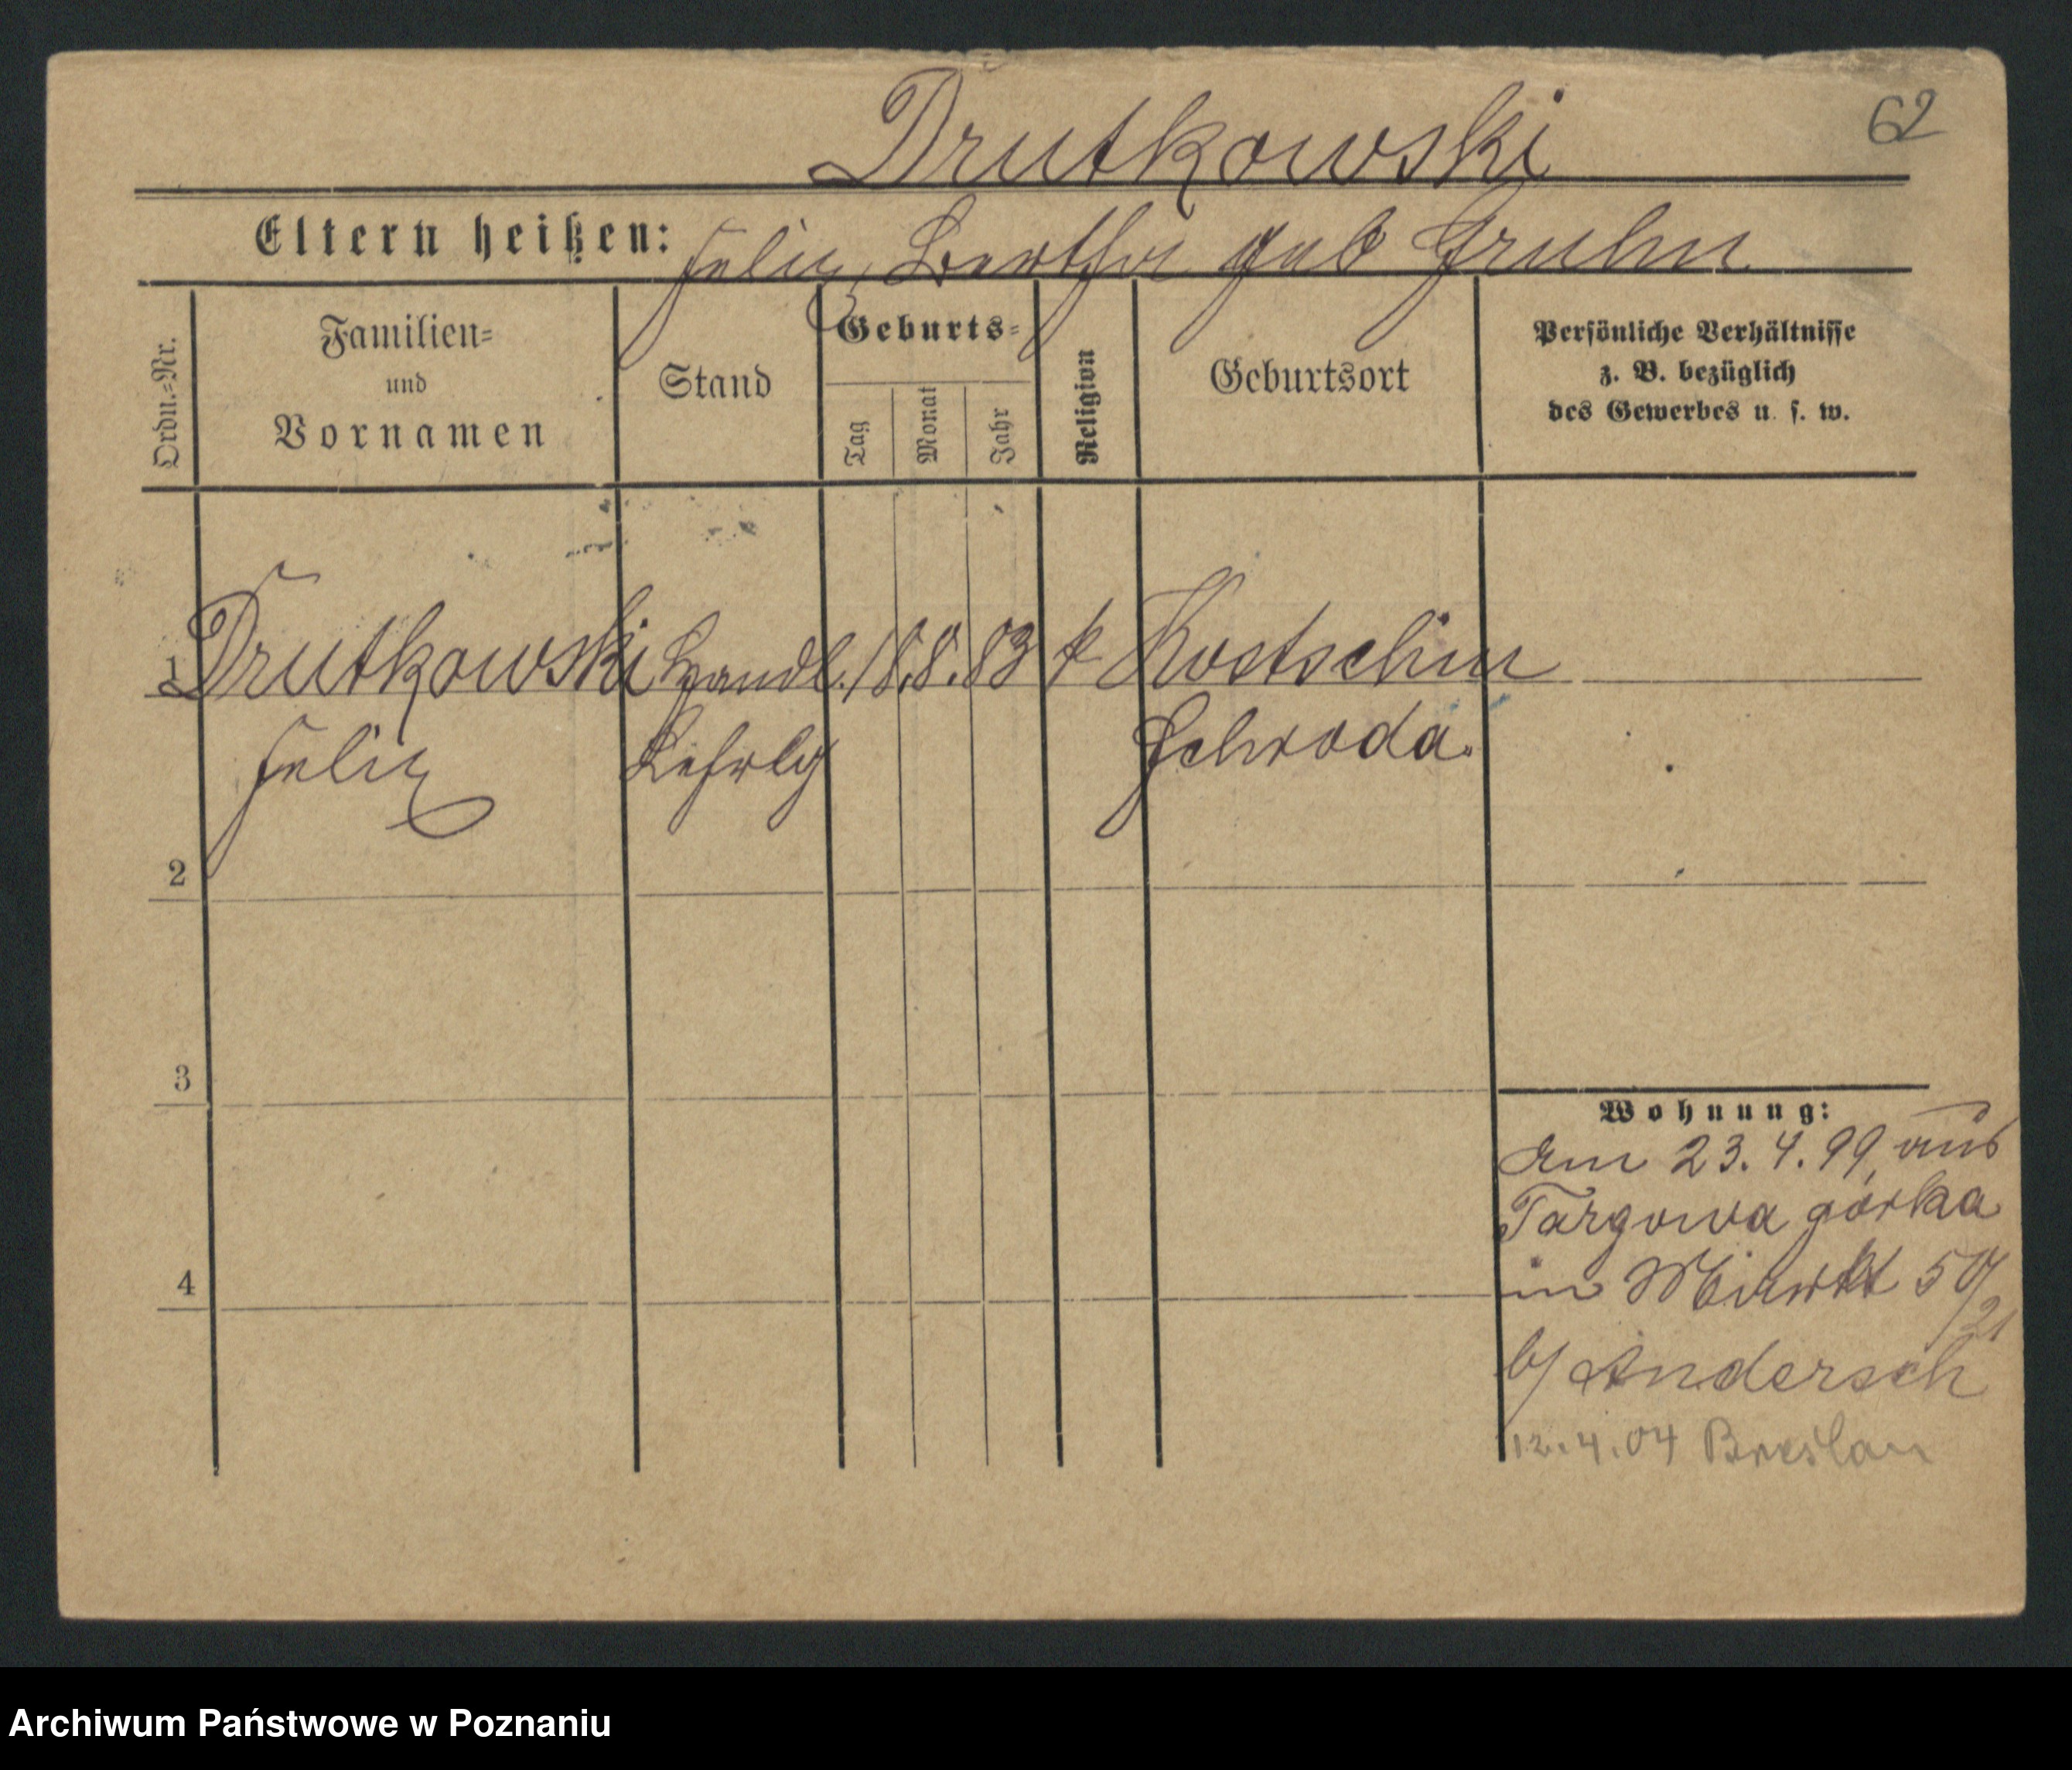 Drutkowski
62
Eltern heißen: Felix, Bertha geb Gruhn
Ordn.-Nr.
Familien-
und
Vornamen
Stand
Geburts-
Tag
Monat
Jahr
Religion
Geburtsort
Persönliche Verhältnisse
z. B. bezüglich
des Gewerbes u. s. w.
1 Drutkowski Handl. 18.8.83 k Kostschin
Felix Lehrlg Schroda.
2
3
4
Wohnung:
Am 23.4.99, aus
Targowa górka
in Markt 50/
21
b/ Andersch
12.4.04 Breslau
Archiwum Państwowe w Poznaniu